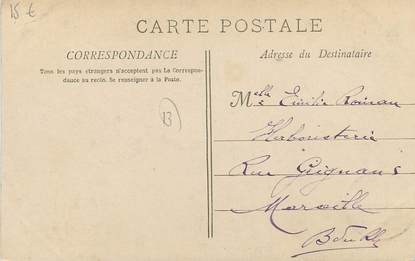 15 €
CARTE POSTALE
CORRESPONDANCE
Tous les pays étrangers n'acceptent pas la Correspon-
dance au recto. Se renseigner à la Poste.
13
Adresse du Destinataire
Melle Emilie Roman
Herboristerie
Rue Grignan 8
Marseille
B du Rh